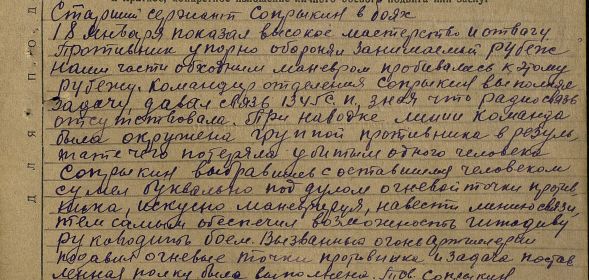 Старший сержант Сопрыкин в боях
18 января показал высокое мастерство и отвагу
Противник упорно оборонял занимаемый рубеж
Наши части обходным маневром пробивалась к этому
рубежу. Командир отделения Сопрыкин выполняя
задачу, давал связь 1345 с.п, зная что радиосвязь
отсутствовала. При наводке линии команда
была окружена группой противника в резуль
тате чего потеряла убитым одного человека
Сопрыкин выбравшись с оставшимся человеком
сумел буквально под дулом огневой точки против
ника, искусно маневрируя, навести линию связи,
тем самым обеспечил возможность комдиву
руководить боем. Вызванный огонь артиллерии
подавил огневые точки противника и задача постав
ленная полку была выполнена. Тов. Сопрыкин